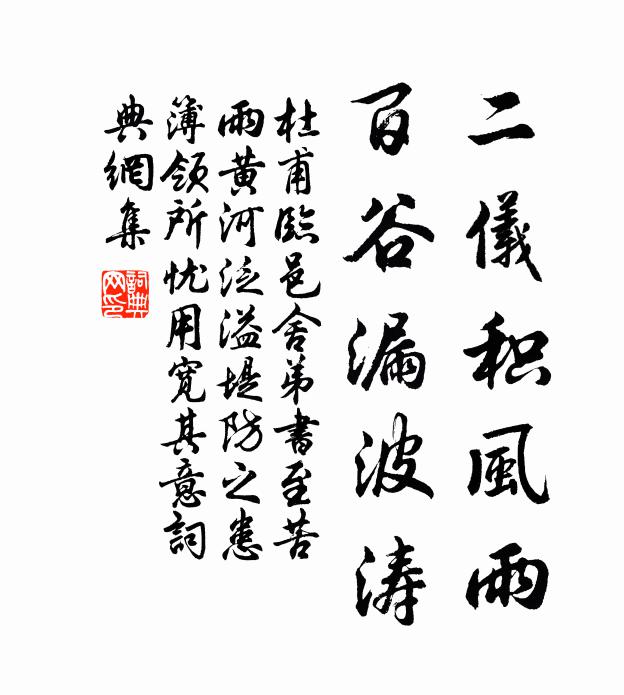 二儀积風雨
百谷漏波涛
杜甫臨邑舍弟書至苦
雨黄河泛溢堤防之患
簿領所忧用寬其意詞
典網集
詞典
网印